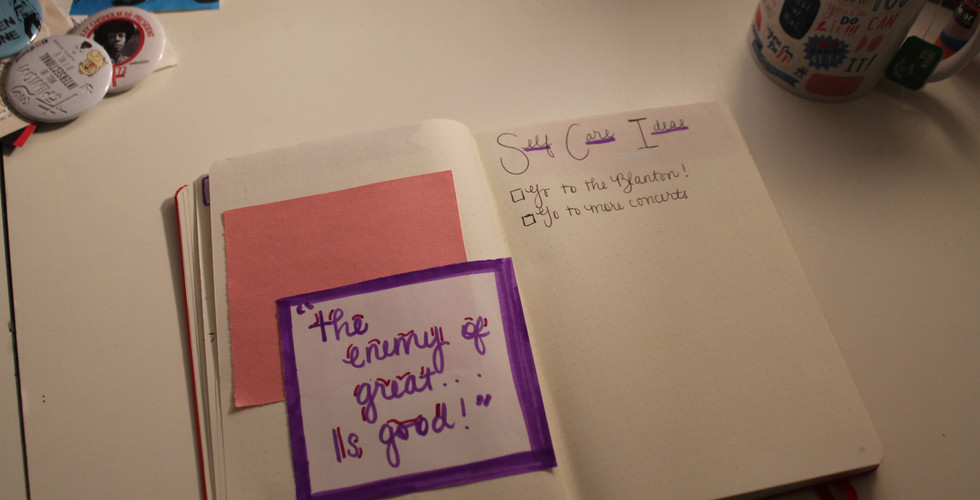 "the
enemy of
great...
Is good!"
Self Care Ideas
Go to the Blanton!
Go to more concerts
YOU
CAN
DO
IT!